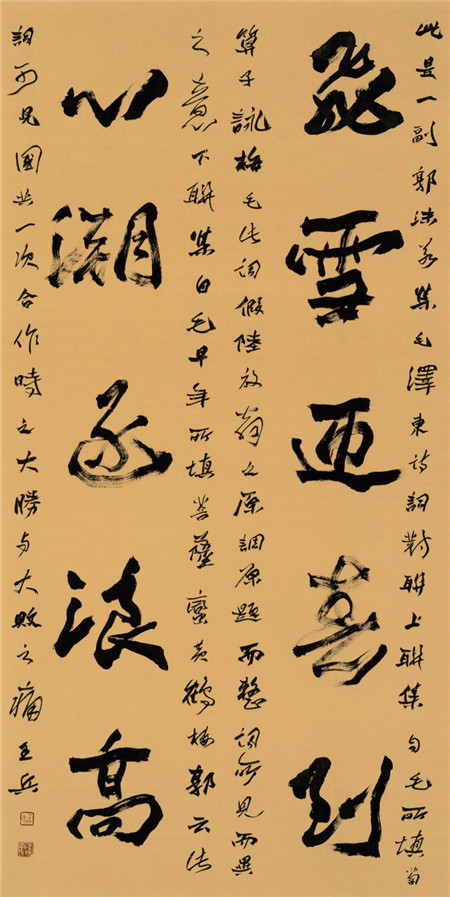 此是一副郭沫若集毛澤東詩詞對聯上聯集自毛所填蔔
飛雪迎春到
算子詠梅毛此詞假陸放翁之原調原題而整詞所見而異
之意下聯集自毛早年所填菩薩蠻黃鶴樓郭云此
心潮逐浪高
詞可見國共一次合作時之大勝与大敗之痛 王兵